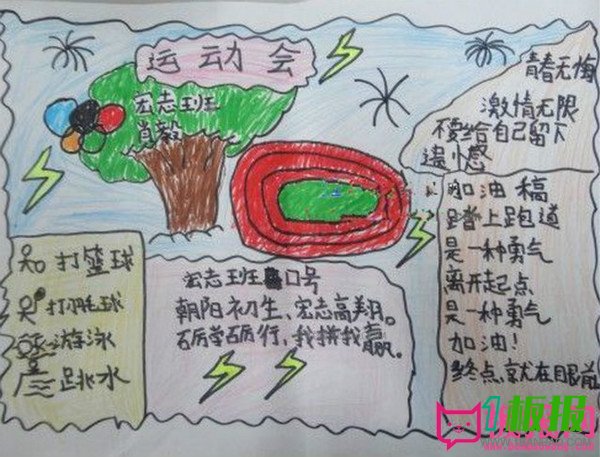 运动会
宏志班
肖毅
青春无悔
激情无限
不要给自己留下
遗憾
加油稿
踏上跑道
是一种勇气
离开起点
是一种勇气
加油!
终点,就在眼前
打篮球
打羽毛球
游泳
跳水
宏志班口号
朝阳初生、宏志高翔。
砺学砺行,我拼我赢。
1板报